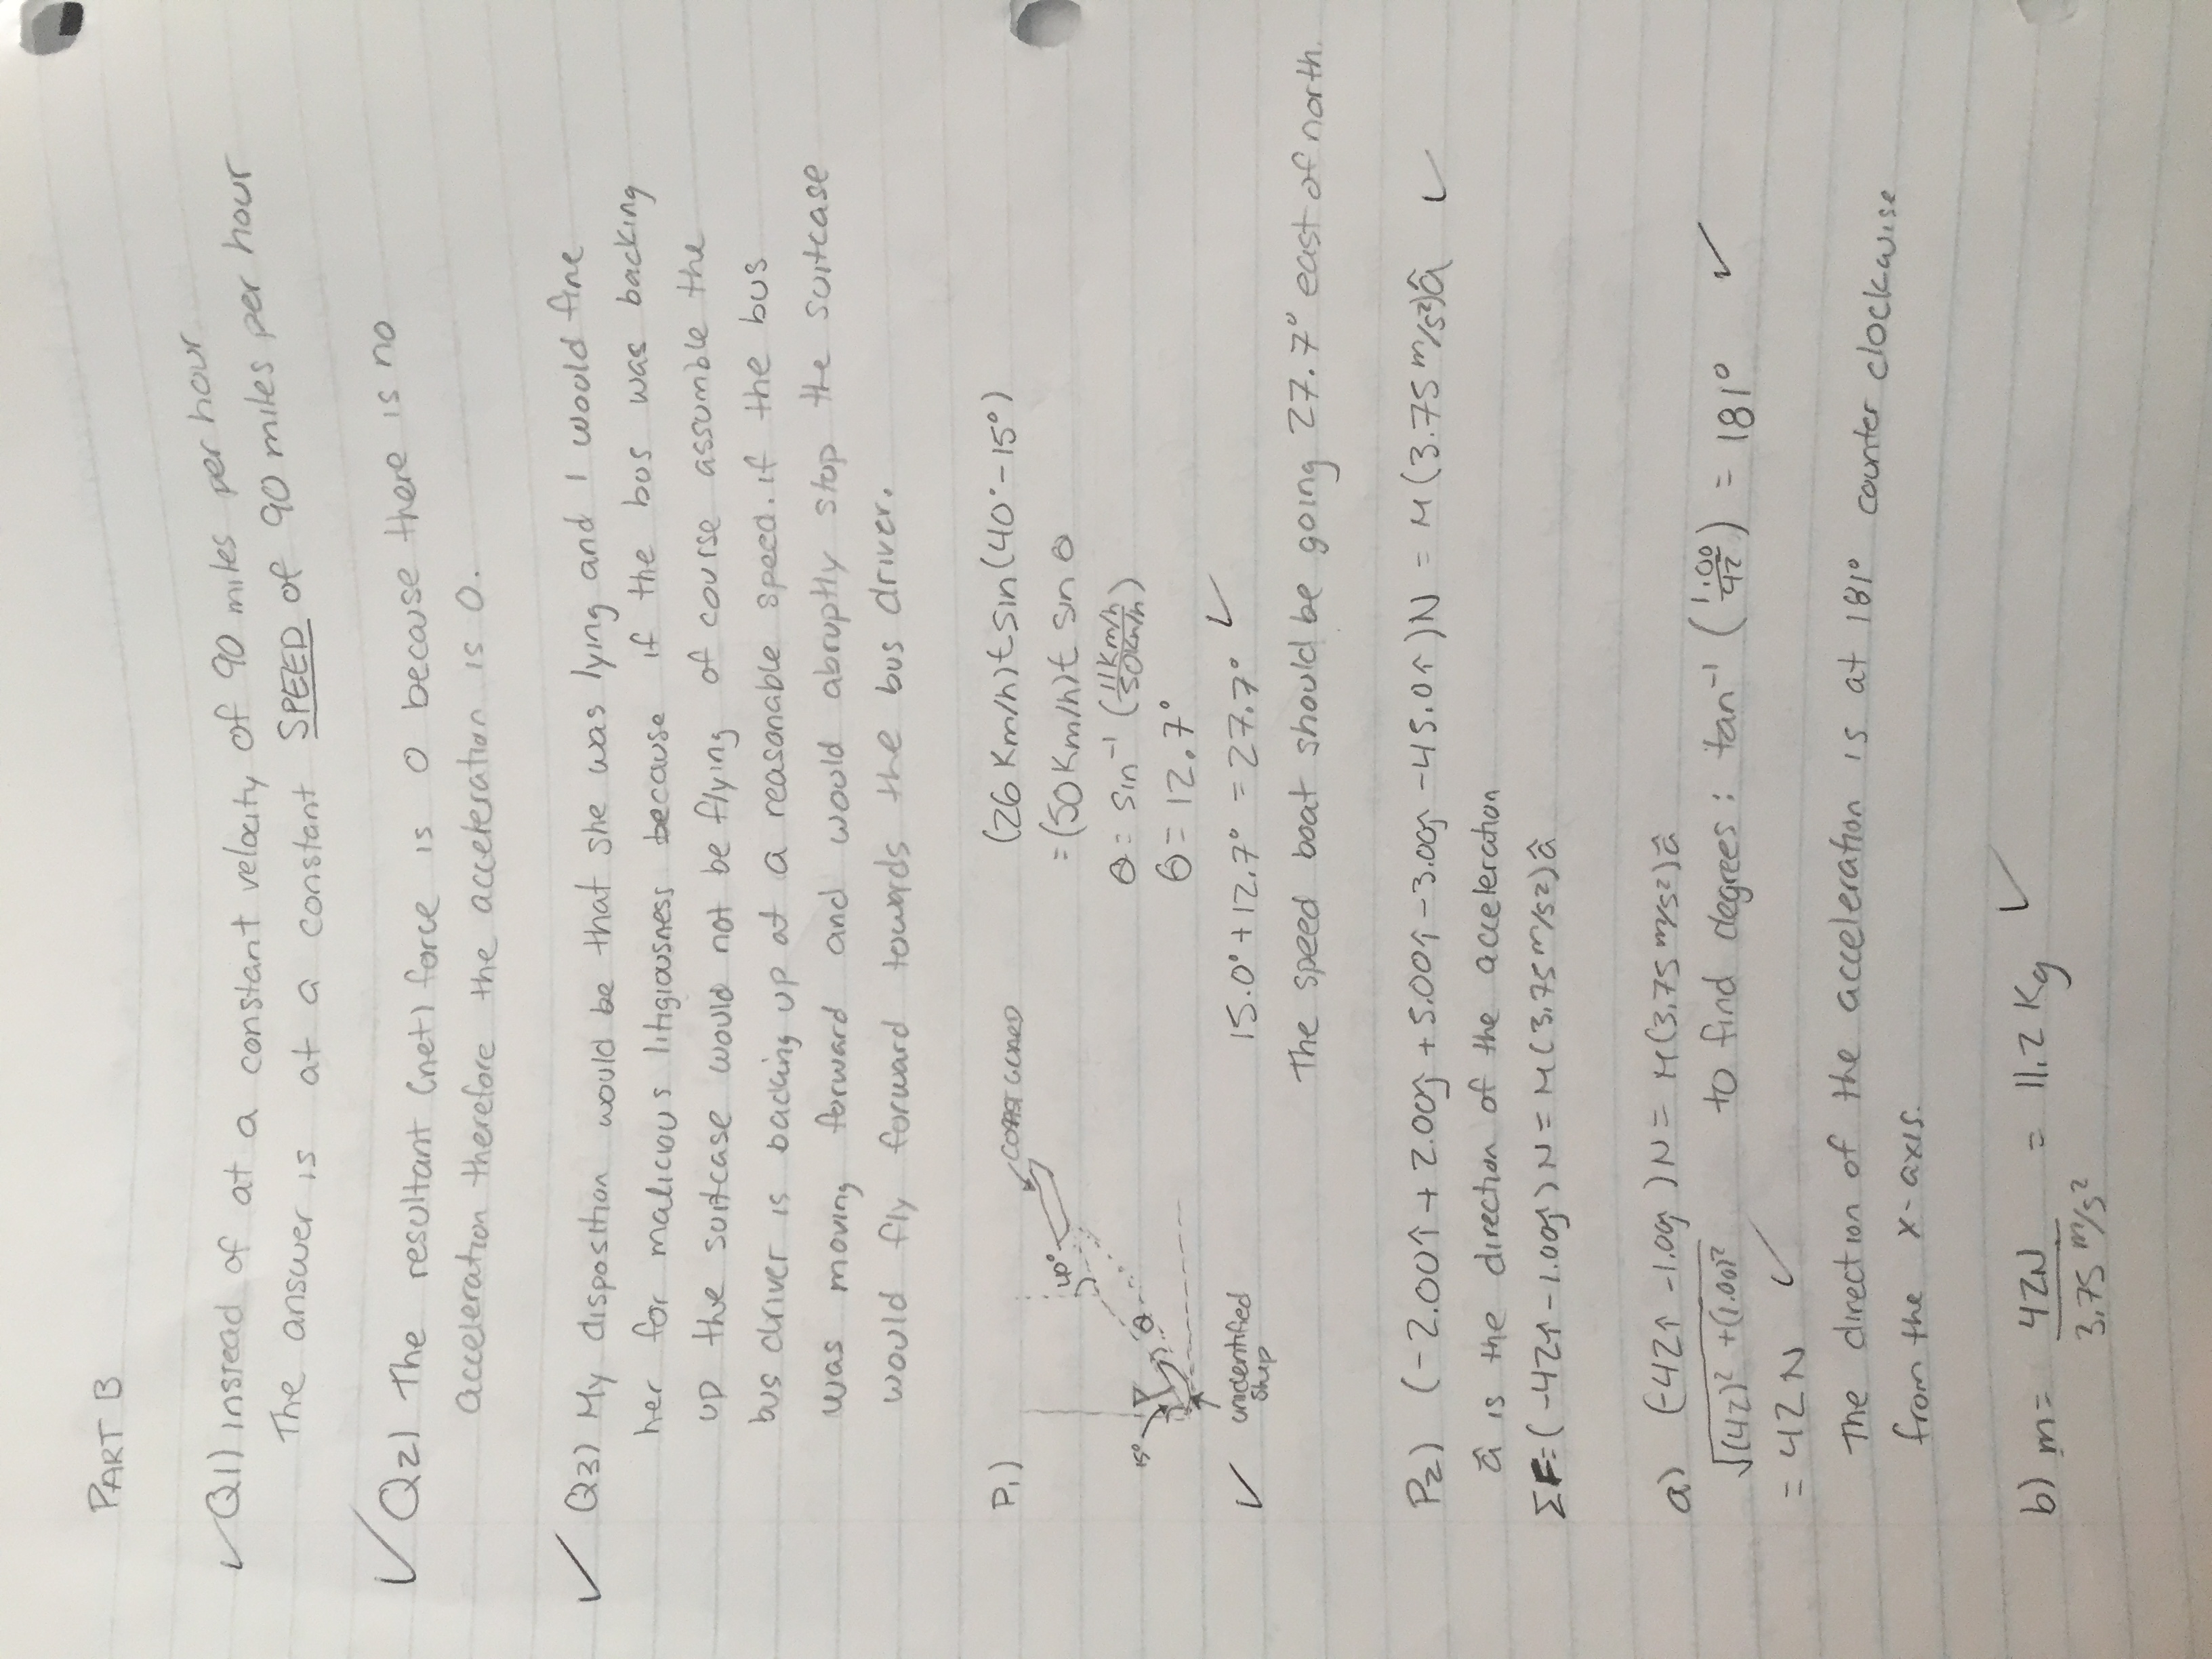 PART B
✓ Q1) Instead of at a constant velocity of 90 miles per hour
The answer is at a constant SPEED of 90 miles per hour
✓ Q2) The resultant (net) force is 0 because there is no
acceleration therefore the acceleration is 0.
✓ Q3) My disposition would be that she was lying and I would fine
her for malicious litigiousness because if the bus was backing
up the suitcase would not be flying of course assumble the
bus driver is backing up at a reasonable speed. if the bus
was moving forward and would abruptly stop the suitcase
would fly forward towards the bus driver.
P1)
40°
15°
θ
unidentified
ship
✓
(26 Km/h)t sin(40°-15°)
=(50Km/h)t sin θ
θ = sin⁻¹ (11Km/h / 50Km/h)
θ = 12.7°
15.0° + 12.7° = 27.7° ✓
The speed boat should be going 27.7° east of north.
P2) (-2.00↑ + 2.00j + 5.00↑ -3.00j -45.0↑)N = M(3.75 m/s²)â ✓
â is the direction of the acceleration
ΣF=(-42↑ -1.00j)N = M(3.75 m/s²)â
a) (-42↑ -1.00j)N = M(3.75 m/s²)â
√(42)² + (1.00)² to find degrees: tan⁻¹ (1.00/42) = 181° ✓
= 42N ✓
The direction of the acceleration is at 181° counter clockwise
from the x-axis.
b) m = 42N / 3.75 m/s² = 11.2 Kg ✓